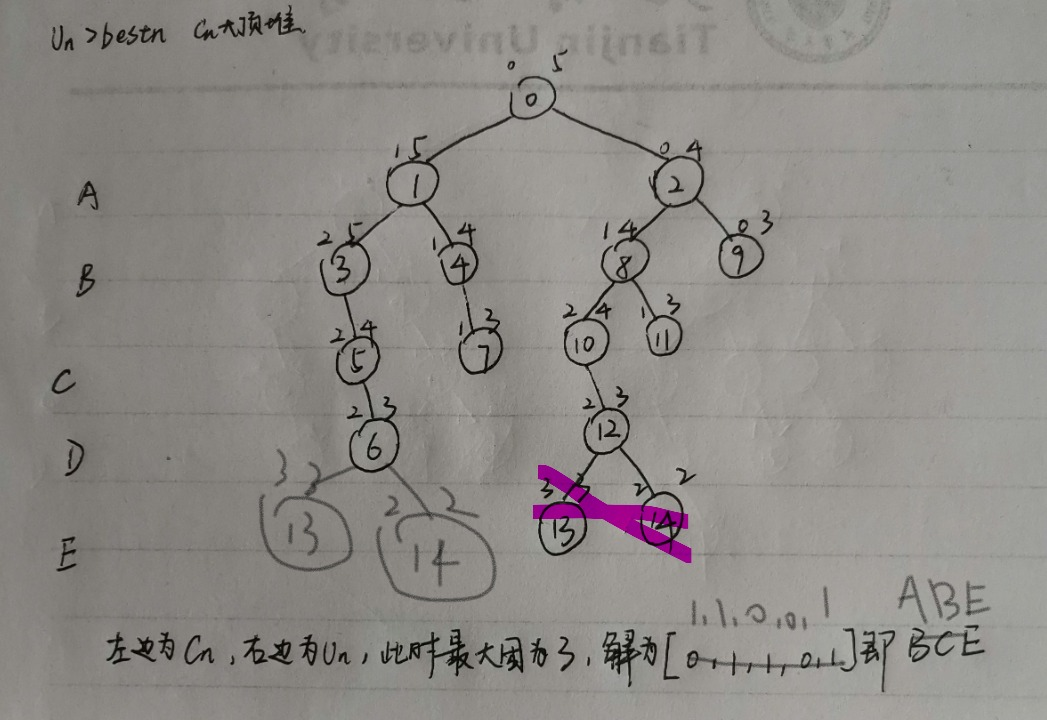 Un >bestn Cn大顶堆
Tianjin University
0 5
0
A
1 5
1
0 4
2
B
2 5
3
1 4
4
1 4
8
0 3
9
C
2 4
5
1 3
7
2 4
10
1 3
11
D
2 3
6
2 3
12
E
3 3
13
2 2
14
3 3
13
2 2
14
1,1,0,0,1 ABE
左边为Cn,右边为Un,此时最大团为3,解为[0,1,1,0,1]即BCE